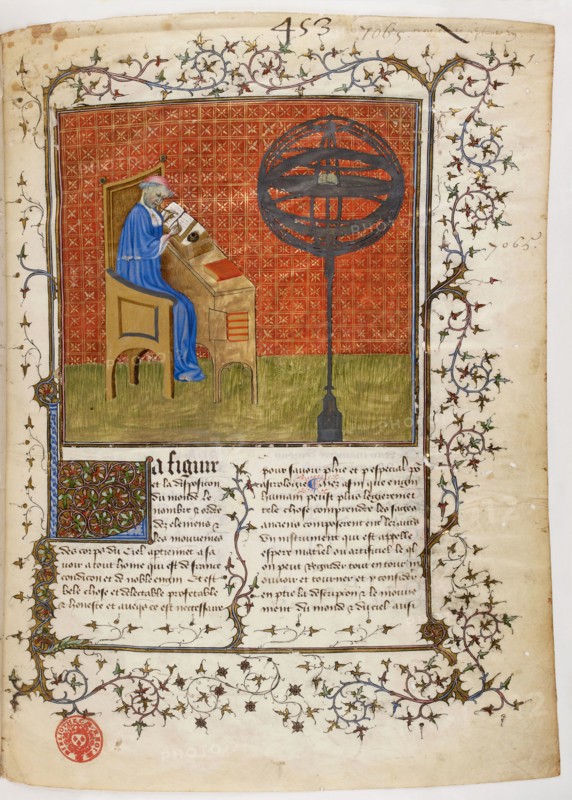 453
7065
7065
La figure
et la disposicion
du monde le
nombre & ordre
des elemens &
les mouuemens
des corps du ciel aptiennent a sa
uoir a tout home qui est de france
condicion et de noble engin Et est
bele chose et delectable profetable
& honeste et aueqs ce est necessaire
pour sauoir phie et p especial po
astrologie
humain
rele chose comprendre les sages
anciens composerent
un instrument qui est appelle
espere materiel ou artificiel le ql
on peut regarder tout entour mo
uuoir et tourner et y considerer
en ptie la descripcion & le mouue
ment du monde & du ciel aussi